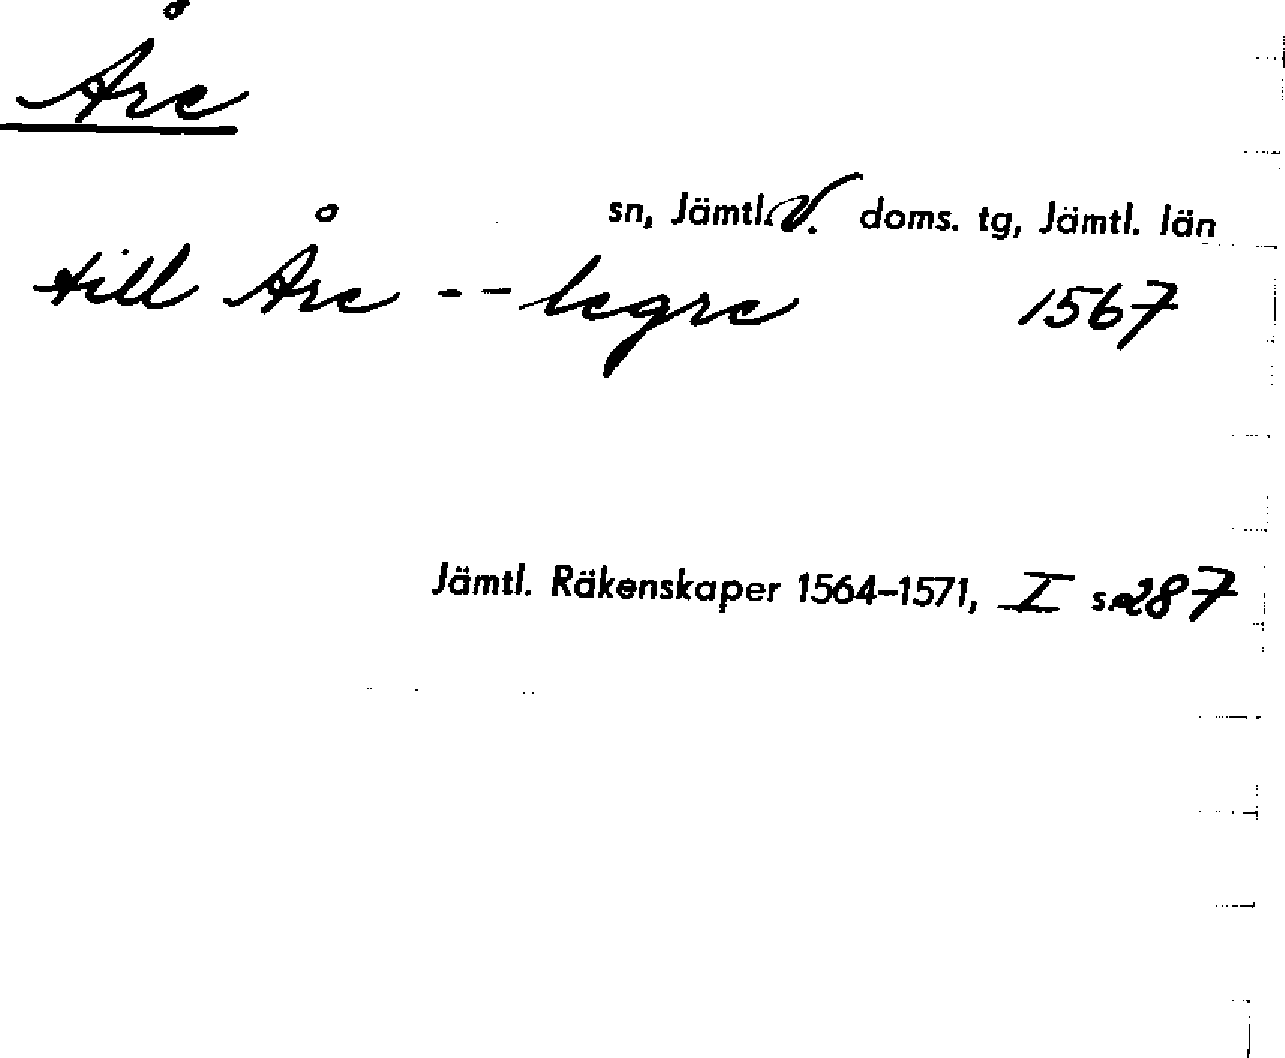 Åre
sn, Jämtl. V. doms. tg, Jämtl. län
till Åre -- legre 1567
Jämtl. Räkenskaper 1564-1571, I s. 287